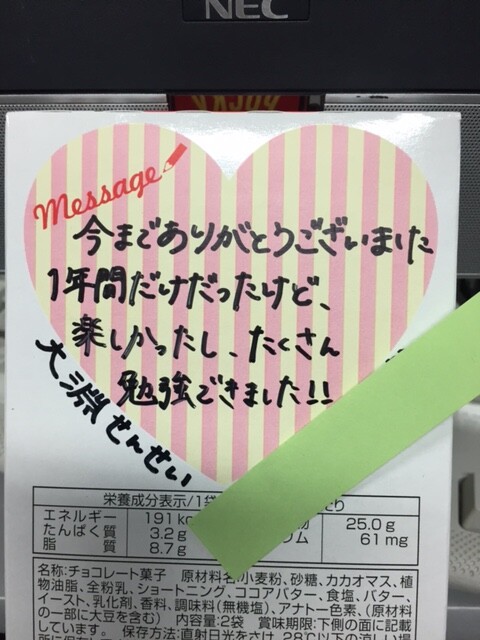 NEC
Message
今までありがとうございました
1年間だけだったけど、
楽しかったし、たくさん
勉強できました!!
大淵せんせい
栄養成分表示/1袋
エネルギー 191 kc
たんぱく質 3.2g 25.0g
脂質 8.7g ウム 61mg
名称:チョコレート菓子 原材料名:小麦粉、砂糖、カカオマス、植
物油脂、全粉乳、ショートニング、ココアバター、食塩、バター、
イースト、乳化剤、香料、調味料(無機塩)、アナトー色素、(原材料
の一部に大豆を含む) 内容量:2袋 賞味期限:下側の面に記載
しています。 保存方法:直射日光をさけ、28℃以下の涼しい